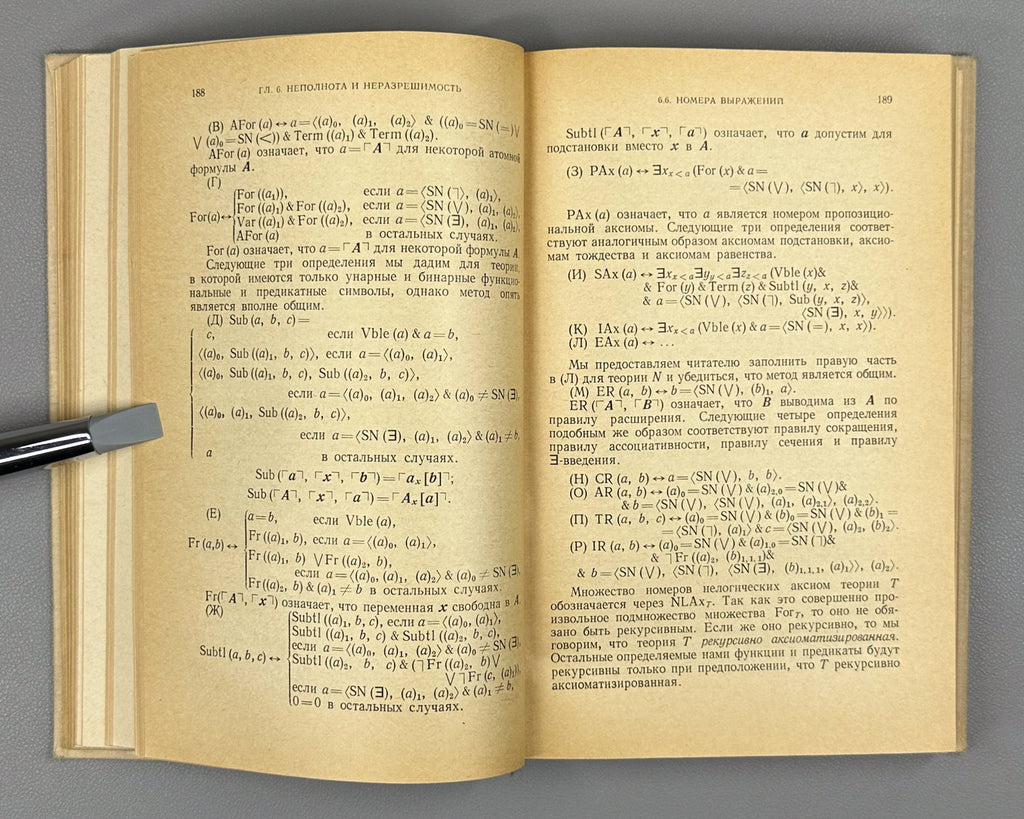 188
ГЛ. 6. НЕПОЛНОТА И НЕРАЗРЕШИМОСТЬ
(В) AFor (a) ↔ a = ⟨(a)₀, (a)₁, (a)₂⟩ & ((a)₀ = SN (=) ∨
∨ (a)₀ = SN (<)) & Term ((a)₁) & Term ((a)₂).
AFor (a) означает, что a = ⌜A⌝ для некоторой атомной
формулы A.
(Г)
For ((a₁)), если a = ⟨SN (⌝), (a)₁⟩,
For ((a)₁) & For ((a)₂), если a = ⟨SN (∨), (a)₁, (a)₂⟩,
For(a) ↔ Var ((a)₁) & For ((a)₂), если a = ⟨SN (∃), (a)₁, (a)₂⟩,
AFor (a) в остальных случаях.
For (a) означает, что a = ⌜A⌝ для некоторой формулы A.
Следующие три определения мы дадим для теории,
в которой имеются только унарные и бинарные функцио-
нальные и предикатные символы, однако метод опять
является вполне общим.
(Д) Sub (a, b, c) =
c, если Vble (a) & a = b,
⟨(a)₀, Sub ((a)₁, b, c)⟩, если a = ⟨(a)₀, (a)₁⟩,
⟨(a)₀, Sub ((a)₁, b, c), Sub ((a)₂, b, c)⟩,
если a = ⟨(a)₀, (a)₁, (a)₂⟩ & (a)₀ ≠ SN (∃),
⟨(a)₀, (a)₁, Sub ((a)₂, b, c)⟩,
если a = ⟨SN (∃), (a)₁, (a)₂⟩ & (a)₁ ≠ b,
a в остальных случаях.
Sub (⌜a⌝, ⌜x⌝, ⌜b⌝) = ⌜aₓ [b]⌝;
Sub (⌜A⌝, ⌜x⌝, ⌜a⌝) = ⌜Aₓ [a]⌝.
(Е)
a = b, если Vble (a),
Fr ((a)₁, b), если a = ⟨(a)₀, (a)₁⟩,
Fr (a,b) ↔
Fr ((a)₁, b) ∨ Fr ((a)₂, b),
если a = ⟨(a)₀, (a)₁, (a)₂⟩ & (a)₀ ≠ SN (∃),
Fr ((a)₂, b) & (a)₁ ≠ b в остальных случаях.
Fr(⌜A⌝, ⌜x⌝) означает, что переменная x свободна в A.
(Ж)
Subtl ((a)₁, b, c), если a = ⟨(a)₀, (a)₁⟩,
Subtl ((a)₁, b, c) & Subtl ((a)₂, b, c),
если a = ⟨(a)₀, (a)₁, (a)₂⟩ & (a)₀ ≠ SN (∃),
Subtl (a, b, c) ↔ Subtl ((a)₂, b, c) & (⌝ Fr ((a)₂, b) ∨
∨ ⌝ Fr (c, (a)₁)),
если a = ⟨SN (∃), (a)₁, (a)₂⟩ & (a)₁ ≠ b,
0 = 0 в остальных случаях.
6.6. НОМЕРА ВЫРАЖЕНИЙ
189
Subtl (⌜A⌝, ⌜x⌝, ⌜a⌝) означает, что a допустим для
подстановки вместо x в A.
(З) PAx (a) ↔ ∃xₓ<ₐ (For (x) & a =
= ⟨SN (∨), ⟨SN (⌝), x⟩, x⟩).
PAx (a) означает, что a является номером пропозицио-
нальной аксиомы. Следующие три определения соответ-
ствуют аналогичным образом аксиомам подстановки, аксио-
мам тождества и аксиомам равенства.
(И) SAx (a) ↔ ∃xₓ<ₐ∃y_y<ₐ∃z_z<ₐ (Vble (x)&
& For (y) & Term (z) & Subtl (y, x, z)&
& a = ⟨SN (∨), ⟨SN (⌝), Sub (y, x, z)⟩,
⟨SN (∃), x, y⟩⟩).
(К) IAx (a) ↔ ∃xₓ<ₐ (Vble (x) & a = ⟨SN (=), x, x⟩).
(Л) EAx (a) ↔ ...
Мы предоставляем читателю заполнить правую часть
в (Л) для теории N и убедиться, что метод является общим.
(М) ER (a, b) ↔ b = ⟨SN (∨), (b)₁, a⟩.
ER (⌜A⌝, ⌜B⌝) означает, что B выводима из A по
правилу расширения. Следующие четыре определения
подобным же образом соответствуют правилу сокращения,
правилу ассоциативности, правилу сечения и правилу
∃-введения.
(Н) CR (a, b) ↔ a = ⟨SN (∨), b, b⟩.
(О) AR (a, b) ↔ (a)₀ = SN (∨) & (a)₂,₀ = SN (∨)&
& b = ⟨SN (∨), ⟨SN (∨), (a)₁, (a)₂,₁⟩, (a)₂,₂⟩.
(П) TR (a, b, c) ↔ (a)₀ = SN (∨) & (b)₀ = SN (∨) & (b)₁ =
= ⟨SN (⌝), (a)₁⟩ & c = ⟨SN (∨), (a)₂, (b)₂⟩.
(Р) IR (a, b) ↔ (a)₀ = SN (∨) & (a)₁,₀ = SN (⌝)&
& ⌝ Fr ((a)₂, (b)₁,₁,₁)&
& b = ⟨SN (∨), ⟨SN (⌝), ⟨SN (∃), (b)₁,₁,₁, (a)₁⟩⟩, (a)₂⟩.
Множество номеров нелогических аксиом теории T
обозначается через NLAx_T. Так как это совершенно про-
извольное подмножество множества For_T, то оно не обя-
зано быть рекурсивным. Если же оно рекурсивно, то мы
говорим, что теория T рекурсивно аксиоматизированная.
Остальные определяемые нами функции и предикаты будут
рекурсивны только при предположении, что T рекурсивно
аксиоматизированная.